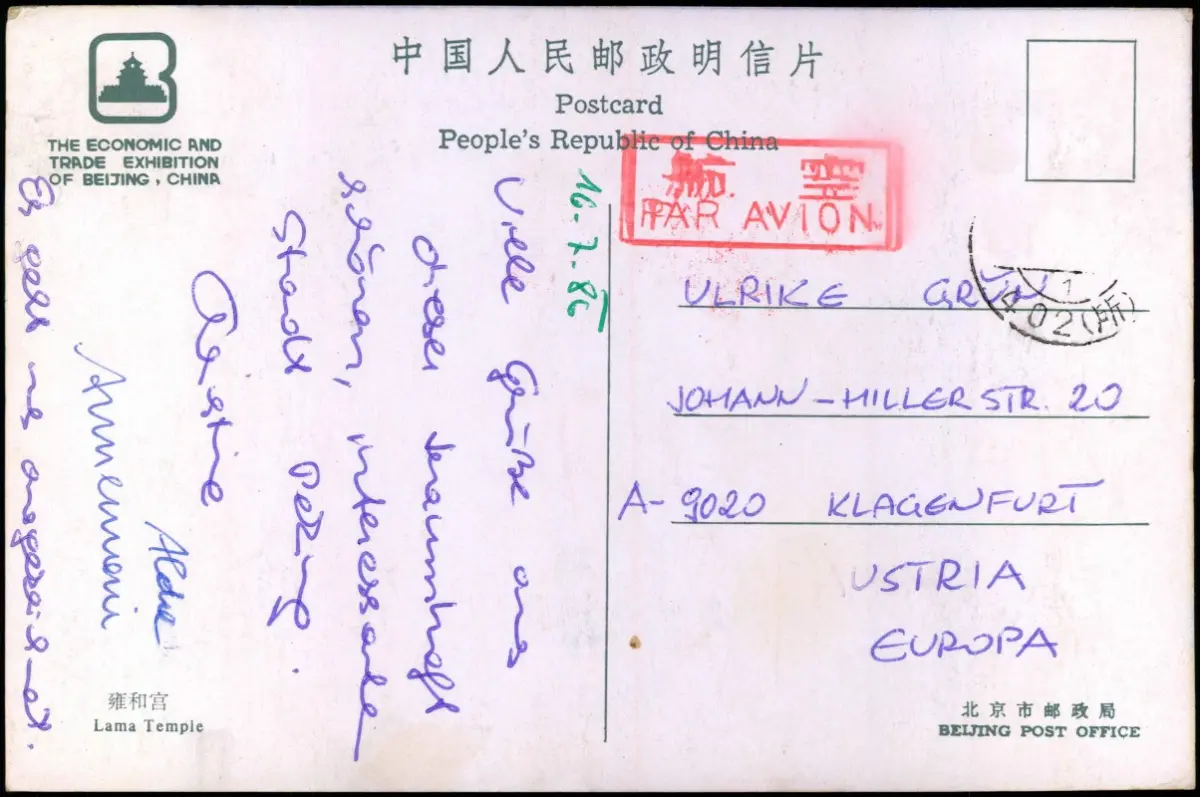 中国人民邮政明信片
Postcard
People's Republic of China
THE ECONOMIC AND
TRADE EXHIBITION
OF BEIJING, CHINA
航空
PAR AVION
16.7.86
Viele Grüße aus
dieser traumhaft
schönen, interessanten
Stadt Peking.
Christine
Annemarie
Es geht uns ausgezeichnet.
ULRIKE GRÜN
JOHANN-HILLERSTR. 20
A-9020 KLAGENFURT
USTRIA
EUROPA
1
402(所)
雍和宫
Lama Temple
北京市邮政局
BEIJING POST OFFICE